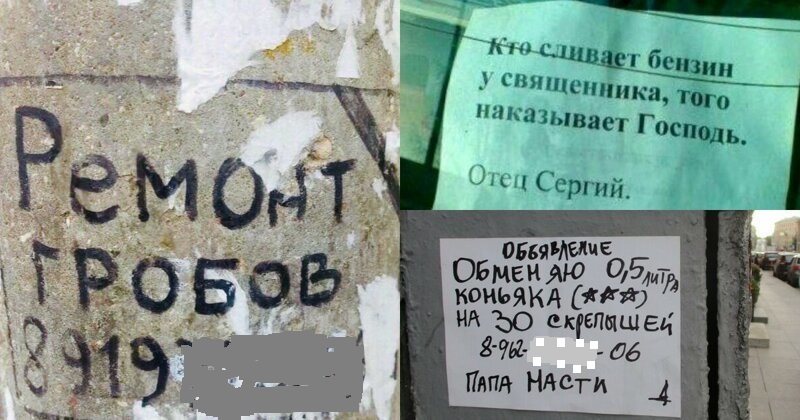 Ремонт
гробов
8919
Кто сливает бензин
у священника, того
наказывает Господь.
Отец Сергий.
ОБЪЯВЛЕНИЕ
ОБМЕНЯЮ 0,5 ЛИТРА
КОНЬЯКА (★★★)
НА 30 СКРЕПЫШЕЙ
8-962- -06
ПАПА НАСТИ